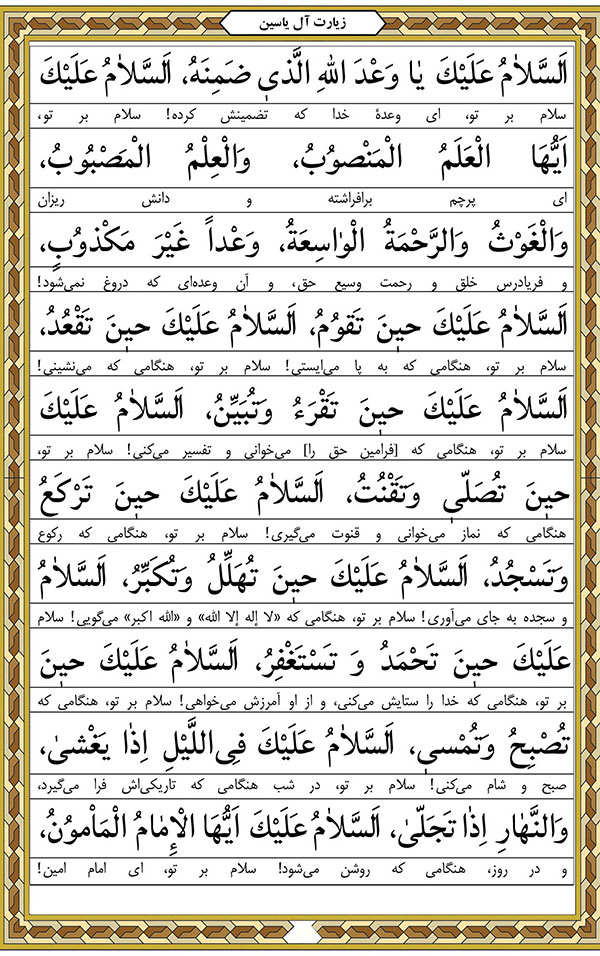 زیارت آل یاسین
اَلسَّلاٰمُ عَلَیْكَ یٰا وَعْدَ اللهِ الَّذي ضَمِنَهُ، اَلسَّلاٰمُ عَلَیْكَ
سلام بر تو، ای وعدهٔ خدا که تضمینش کرده! سلام بر تو،
اَیُّهَا الْعَلَمُ الْمَنْصوُبُ، وَالْعِلْمُ الْمَصْبُوبُ،
ای پرچم برافراشته و دانش ریزان
وَالْغَوْثُ وَالرَّحْمَةُ الْوٰاسِعَةُ، وَعْداً غَیْرَ مَكْذوُبٍ،
و فریادرس خلق و رحمت وسیع حق، و آن وعده‌ای که دروغ نمی‌شود!
اَلسَّلاٰمُ عَلَیْكَ حینَ تَقوُمُ، اَلسَّلاٰمُ عَلَیْكَ حینَ تَقْعُدُ،
سلام بر تو، هنگامی که به پا می‌ایستی! سلام بر تو، هنگامی که می‌نشینی!
اَلسَّلاٰمُ عَلَیْكَ حینَ تَقْرَءُ وَتُبَیِّنُ، اَلسَّلاٰمُ عَلَیْكَ
سلام بر تو، هنگامی که [فرامین حق را] می‌خوانی و تفسیر می‌کنی! سلام بر تو،
حینَ تُصَلّي وَتَقْنُتُ، اَلسَّلاٰمُ عَلَیْكَ حینَ تَرْكَعُ
هنگامی که نماز می‌خوانی و قنوت می‌گیری! سلام بر تو، هنگامی که رکوع
وَتَسْجُدُ، اَلسَّلاٰمُ عَلَیْكَ حینَ تُهَلِّلُ وَتُكَبِّرُ، اَلسَّلاٰمُ
و سجده به جای می‌آوری! سلام بر تو، هنگامی که «لا إله إلا الله» و «الله اکبر» می‌گویی! سلام
عَلَیْكَ حینَ تَحْمَدُ وَ تَسْتَغْفِرُ، اَلسَّلاٰمُ عَلَیْكَ حینَ
بر تو، هنگامی که خدا را ستایش می‌کنی، و از او آمرزش می‌خواهی! سلام بر تو، هنگامی که
تُصْبِحُ وَتُمْسي، اَلسَّلاٰمُ عَلَیْكَ فِي اللَّیْلِ اِذٰا یَغْشىٰ،
صبح و شام می‌کنی! سلام بر تو، در شب هنگامی که تاریکی‌اش فرا می‌گیرد،
وَالنَّهٰارِ اِذٰا تَجَلّىٰ، اَلسَّلاٰمُ عَلَیْكَ اَیُّهَا الْاِمٰامُ الْمَاْموُنُ،
و در روز، هنگامی که روشن می‌شود! سلام بر تو، ای امام امین!